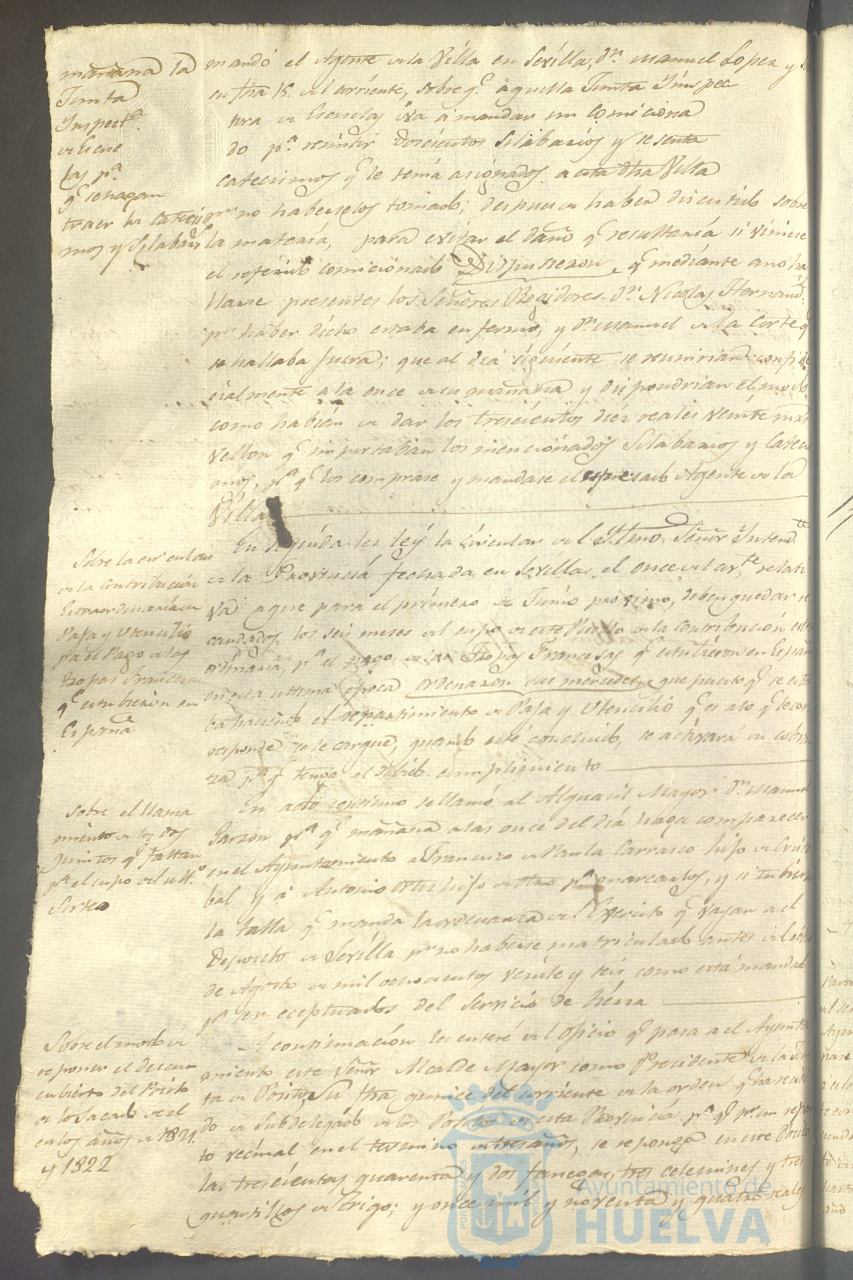 mañana la
Junta
Inspectª.
de Escue
las pª.
qe. se hagan
traer los Catecis
mos y Silabarios
mandó el Agente de la Villa en Sevilla, Dn. Manuel Lopez y
en fha 15. del corriente, sobre qe. aquella Junta Ynspec
tora de Escuelas iva á mandar un Comiciona
do pª. remitir doscientos Silabarios y sesenta
catecismos qe. le tenia asignados a esta dha Villa
pr. no haberselos tomado; despues de haber discutido sobre
la materia, para evitar el daño qe. resultaria si viniese
el referido comicionado Dispusieron qe. mediante a no ha
llarse presentes los Señores Regidores Dn. Nicolas Hernand
pr. haber dicho estaba enfermo, y Dn. Manuel de la Corte q
se hallaba fuera; que al dia siguiente se reunirian
cialmente a la once de su mañana y dispondrian el modo
como habian de dar los trescientos diez reales veinte mrs
vellon qe. importaban los mencionados Silabarios y Catecis
mos, pª. qe. los comprase y mandase el espresado Agente de la
Villa
Sobre la circular
de la Contribucion
Extraordinaria de
Paja y Utencilio
pa el Pago a las
tropas Francesas
qe. estubieron en
España
En seguida les leý la circular del Yltmo. Señor Yntendte
de la Provincia fechada en Sevilla el once del corte. relati
va a que para el primero de Junio proximo, deben quedar re
caudados los seis meses del cupo de este Pueblo de la contribucion estra
ordinaria, pª. el pago de las Tropas Francesas qe. estubieron en España
en esta ultima epoca ordenaron sus mercedes que puesto qe. se esta
ba haciendo el repartimiento de Paja y Utencilio qe. es a lo qe. le cor
responde se le cargue, quando este concluido, se activará su cobran
za pª. qe. tenga el debido cumplimiento
Sobre el llama
miento de los dos
quintos qe. faltan
pª. el cupo del ultº.
Sorteo
En acto continuo se llamó al Alguacil Mayor Dn. Manuel
Garzon pª. qe. mañana a las once del dia haga comparecer
en el Ayuntamiento a Francisco de Paula Carrasco hijo de Cristo
bal y á Antonio Ortiz hijo de pª. marcarlos, y si tubieren
la talla qe. manda la ordenanza del Exercito qe. vayan a el
Deposito de Sevilla pr. no haberse matriculado antes del
de Agosto de mil ochocientos veinte y seis como está mandado
pª. ser eceptuados del Servicio de tierra
Sobre el modo de
reponer el descu
bierto del Posito
de lo Sacado de el
en los años de 1821
y 1822
A continuación les enteré del Oficio qe. pasa a el Ayunta
miento este Señor Alcalde Mayor como Presidente de la Jun
ta de Positos Su fha quince del corriente de la orden qe. ha recibi
do de Subdelegado de los Positos de esta Provincia pª. qe. repar
to vecinal en el termino de tres años, se reponga en este Posito
las trescientas quarenta y dos fanegas, tres celemines y tres
quartillos de trigo; y once mil y noventa y quatro reales
Ayuntamiento de
HUELVA